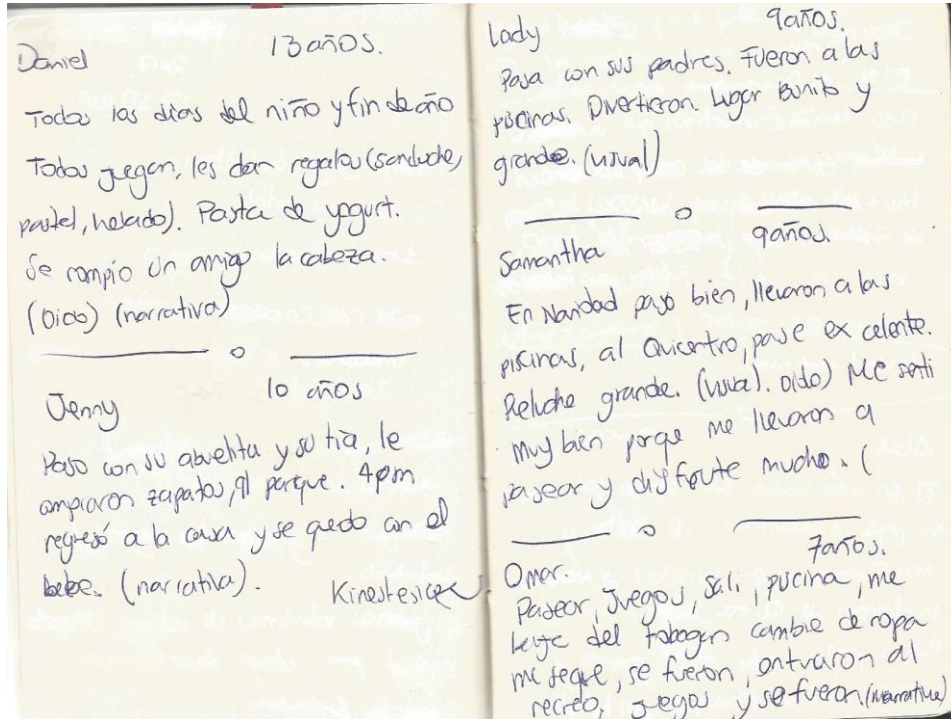 Daniel 13 años.
Todos los dias del niño y fin de año
Todos juegan, les dan regalos (sanduche,
pastel, helado). Pasta de yogurt.
Se rompio un amigo la cabeza.
(Oido) (narrativa)
Jenny 10 años
Paso con su abuelita y su tia, le
compraron zapatos, al parque. 4pm
regresó a la casa y se quedo con el
bebe. (narrativa). Kinestesico
Lady 9años.
Pasa con sus padres. Fueron a las
piscinas. Divertieron. Lugar Bonito y
grande. (visual)
Samantha 9años.
En Navidad paso bien, llevaron a las
piscinas, al Quicentro, pase ex celente.
Peluche grande. (visual). oido) Me senti
muy bien porqe me llevaron a
pasear y disfrute mucho. (
Omar. 7años.
Pasear, Juegos, Sali, piscina, me
del tobogan cambie de ropa
me seque, se fueron, entraron al
recreo, juegos y se fueron. (narrativa)